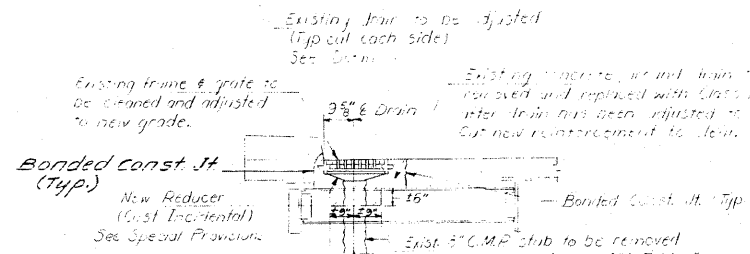 Existing drain to be adjusted
(Typ cut each side)
See
Existing frame & grate to
be cleaned and adjusted
to new grade.
Existing concrete around drain
removed and replaced with Class
after drain has been adjusted to
Cut new reinforcement to clear.
9 5/8" ℄ Drain
Bonded Const. Jt.
(Typ.)
New Reducer
(Cost Incidental)
See Special Provisions
±6"
±9" ±9"
Bonded Const. Jt. (Typ
Exist. 8" C.M.P. stub to be removed